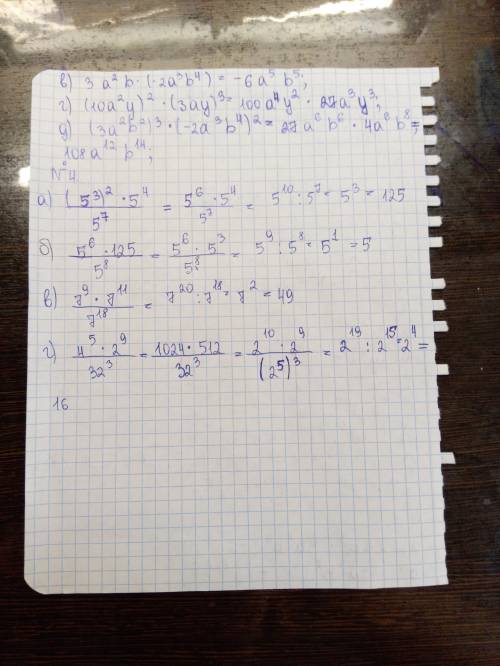 в) 3a²b · (-2a³b⁴) = -6a⁵b⁵;
г) (10a²y)² · (3ay)³ = 100a⁴y² · 27a³y³;
д) (3a²b²)³ · (-2a³b⁴)² = 27a⁶b⁶ · 4a⁶b⁸ =
108a¹²b¹⁴;
№4
а) (5³)² · 5⁴ / 5⁷ = 5⁶ · 5⁴ / 5⁷ = 5¹⁰ : 5⁷ = 5³ = 125
б) 5⁶ · 125 / 5⁸ = 5⁶ · 5³ / 5⁸ = 5⁹ : 5⁸ = 5¹ = 5
в) 7⁹ · 7¹¹ / 7¹⁸ = 7²⁰ : 7¹⁸ = 7² = 49
г) 4⁵ · 2⁹ / 32³ = 1024 · 512 / 32³ = 2¹⁰ · 2⁹ / (2⁵)³ = 2¹⁹ : 2¹⁵ = 2⁴ =
16